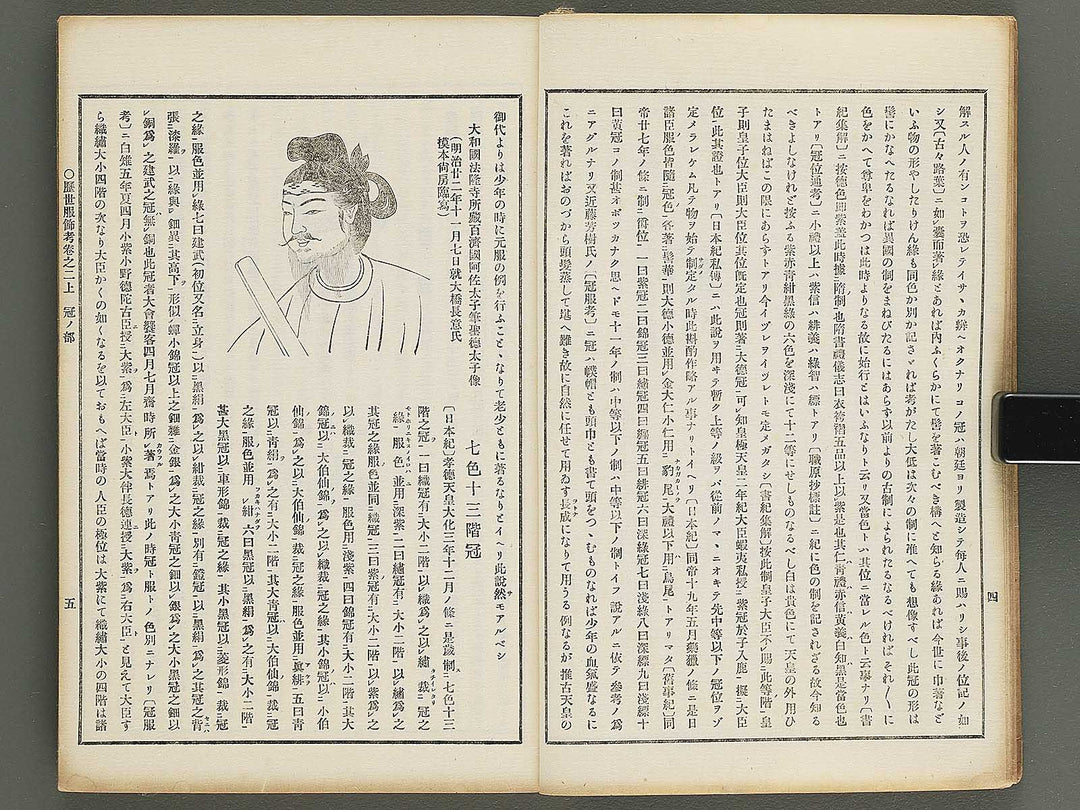 解スル人ノ有ンコトヲ恐レテイサヽカ辨ヘオクナリコノ冠ハ朝廷ヨリ製造シテ毎人ニ賜ハリシ事後ノ位記ノ如
シ又〔古々路葉〕ニ如嚢而著縁とあれば内ふくらかにて髻を著こむべき構へと知らる縁あれば今世に巾著など
いふ物の形やしたりけん縁も同色か別か記さゞれば考がたし大低は次々の制に准へても想像すべし此冠の形は
髻にかなへたるなれば異國の制をまねびたるにはあらず以前よりの古制によられたるなるべければそれ〱に
色をかへて尊卑をわかつは此時よりなる故に始行とはいふなりト云リ又當色トハ其位ニ當レル色ト云事ナリ〔書
紀集解〕ニ按德色
トアリ〔冠位通考〕ニ小禮以上ハ紫信ハ緋義ハ綠智ハ縹トアリ〔職原抄標註〕ニ紀に色の制を記されざる故今知る
べきよしなけれど按ふる紫赤青紺黑綠の六色を深淺にて十二等にせしものなるべし白は貴色にて天皇の外用ひ
たまはねばこの限にあらずトアリ今イヅレヲイヅレトモ定メガタシ〔書紀集解〕按此制皇子大臣不賜此等階皇
子則皇子位大臣則大臣位其位既定也冠則著大德冠可知皇極天皇二年紀大臣蝦夷私授紫冠於子入鹿擬大臣
位此其證也トアリ〔日本紀私傳〕ニハ此說ヲ用ヰテ暫ク上等ノ級ヲバ從前ノマヽニオキテ先中等以下ノ冠位ヲゾ
定メラレケム凡テ物ヲ始テ制定タル時此斟酌作略アル事ナリトイヘリ〔日本紀〕同帝十九年五月藥獵ノ條ニ是日
諸臣服色皆隨冠色各著髻華則大德小德並用金大仁小仁用豹尾大禮以下用鳥尾トアリマタ〔舊事紀〕同
帝廿七年ノ條ニ制爵位一曰紫冠二曰錦冠三曰繡冠四曰纁冠五曰緋冠六曰深綠冠七曰淺綠八曰深縹九曰淺縹十
曰黃冠コノ制甚オボツカナク思ヘドモ十一年ノ制ハ中等以下ノ制ハ中等以下ノ制トイフ說アルニ依テ參考ノ爲
ニアグルナリ又近藤芳樹氏ノ〔冠服考〕ニ冠ハ幞帽とも頭巾とも書て頭をつゝむものなれば少年の血氣盛なるに
これを著ればおのづから頭髮蒸して堪へ難き故に自然に任せて用ゐず長成になりて用うる例なるが推古天皇の
四
御代よりは少年の時に元服の例を行ふことゝなりて老少ともに著るなりとイヘリ此說然モアルベシ
大和國法隆寺所藏百濟國阿佐太子筆聖德太子像
(明治廿二年十一月七日就大橋長憙氏
摸本尙房臨寫)
七色十三階冠
〔日本紀〕孝德天皇大化三年十二月ノ條ニ是歲制七色十三
階之冠一曰織冠有大小二階以織爲之以繡裁冠之
緣服色並用深紫二曰繡冠有大小二階以繡爲之
其冠之緣服色並同織冠三曰紫冠有大小二階以紫爲之
以織裁冠之緣服色用淺紫四曰錦冠有大小二階其大
錦冠以大伯仙錦爲之以織裁冠之緣其小錦冠以小伯
仙錦爲之以大伯仙錦裁冠之緣服色並用眞緋五曰青
冠以青絹爲之有大小二階其大青冠以大伯仙錦裁冠
之緣服色並用紺六曰黑冠以黑絹爲之有大小二階
其大黑冠以車形錦裁冠之緣其小黑冠以菱形錦裁冠
之緣服色並用綠七曰建武(初位又名立身)以黑絹爲之以紺裁冠之緣別有鐙冠以黑絹爲之其冠之背
張漆羅以緣與鈿異其高下形似蟬小錦冠以上之鈿雜金銀爲之大小青冠之鈿以銀爲之大小黑冠之鈿以
銅爲之建武之冠無鈿也此冠者大會饗客四月七月齋時所著焉トアリ此ノ時冠ト服トノ色別ニナレリ〔冠服
考〕ニ白雉五年夏四月小紫小野德陀古臣授大紫爲左大臣小紫大伴長德連授大紫爲右大臣と見えて大臣す
ら織繡大小四階の次なり大臣かくの如くなるを以ておもへば當時の人臣の極位は大紫にて織繡大小の四階は諸
〇歷世服飾考卷之二上　冠ノ部
五